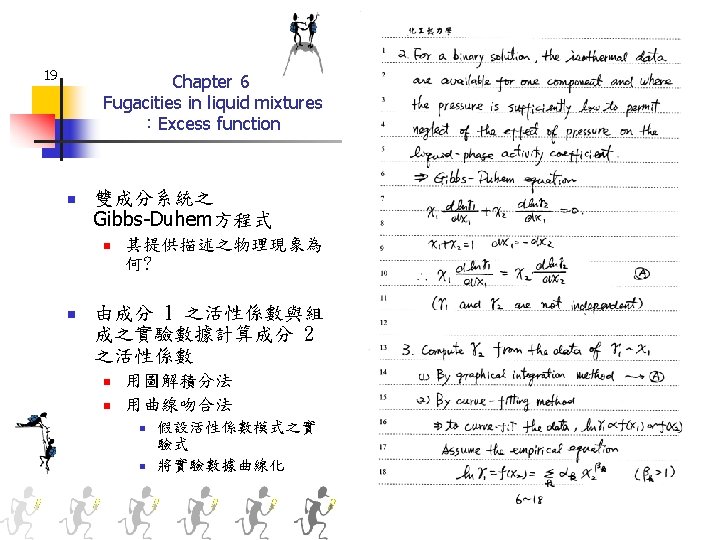 19
Chapter 6
Fugacities in liquid mixtures
：Excess function
雙成分系統之
Gibbs-Duhem方程式
其提供描述之物理現象為
何?
由成分 1 之活性係數與組
成之實驗數據計算成分 2
之活性係數
用圖解積分法
用曲線吻合法
假設活性係數模式之實
驗式
將實驗數據曲線化
化工熱力學
1 2. For a binary solution, the isothermal data
2 are available for one component and where
3 the pressure is sufficiently low to permit
4 neglect of the effect of pressure on the
5 liquid-phase activity coefficient.
6 ⇒ Gibbs-Duhem equation
7 x₁ dlnr₁/dx₁ + x₂ dlnr₂/dx₁ = 0.
8
9 x₁+x₂=1 dx₁=-dx₂
10 ∴ x₁ dlnr₁/dx₁ = x₂ dlnr₂/dx₂ Ⓐ
11
12 (r₁ and r₂ are not independent)
13 3. Compute r₂ from the data of r₁~x₁
14 (1) By graphical integration method → Ⓐ
15 (2) By curve-fitting method
16 ⇒ to curve-fit the data, lnr₁ ∝ f(x₁) ∝ f(x₂)
17 Assume the empirical equation
18 ln r₁ = f(x₂) = Σ_k α_k x₂^β_k (β_k>1)
6~18